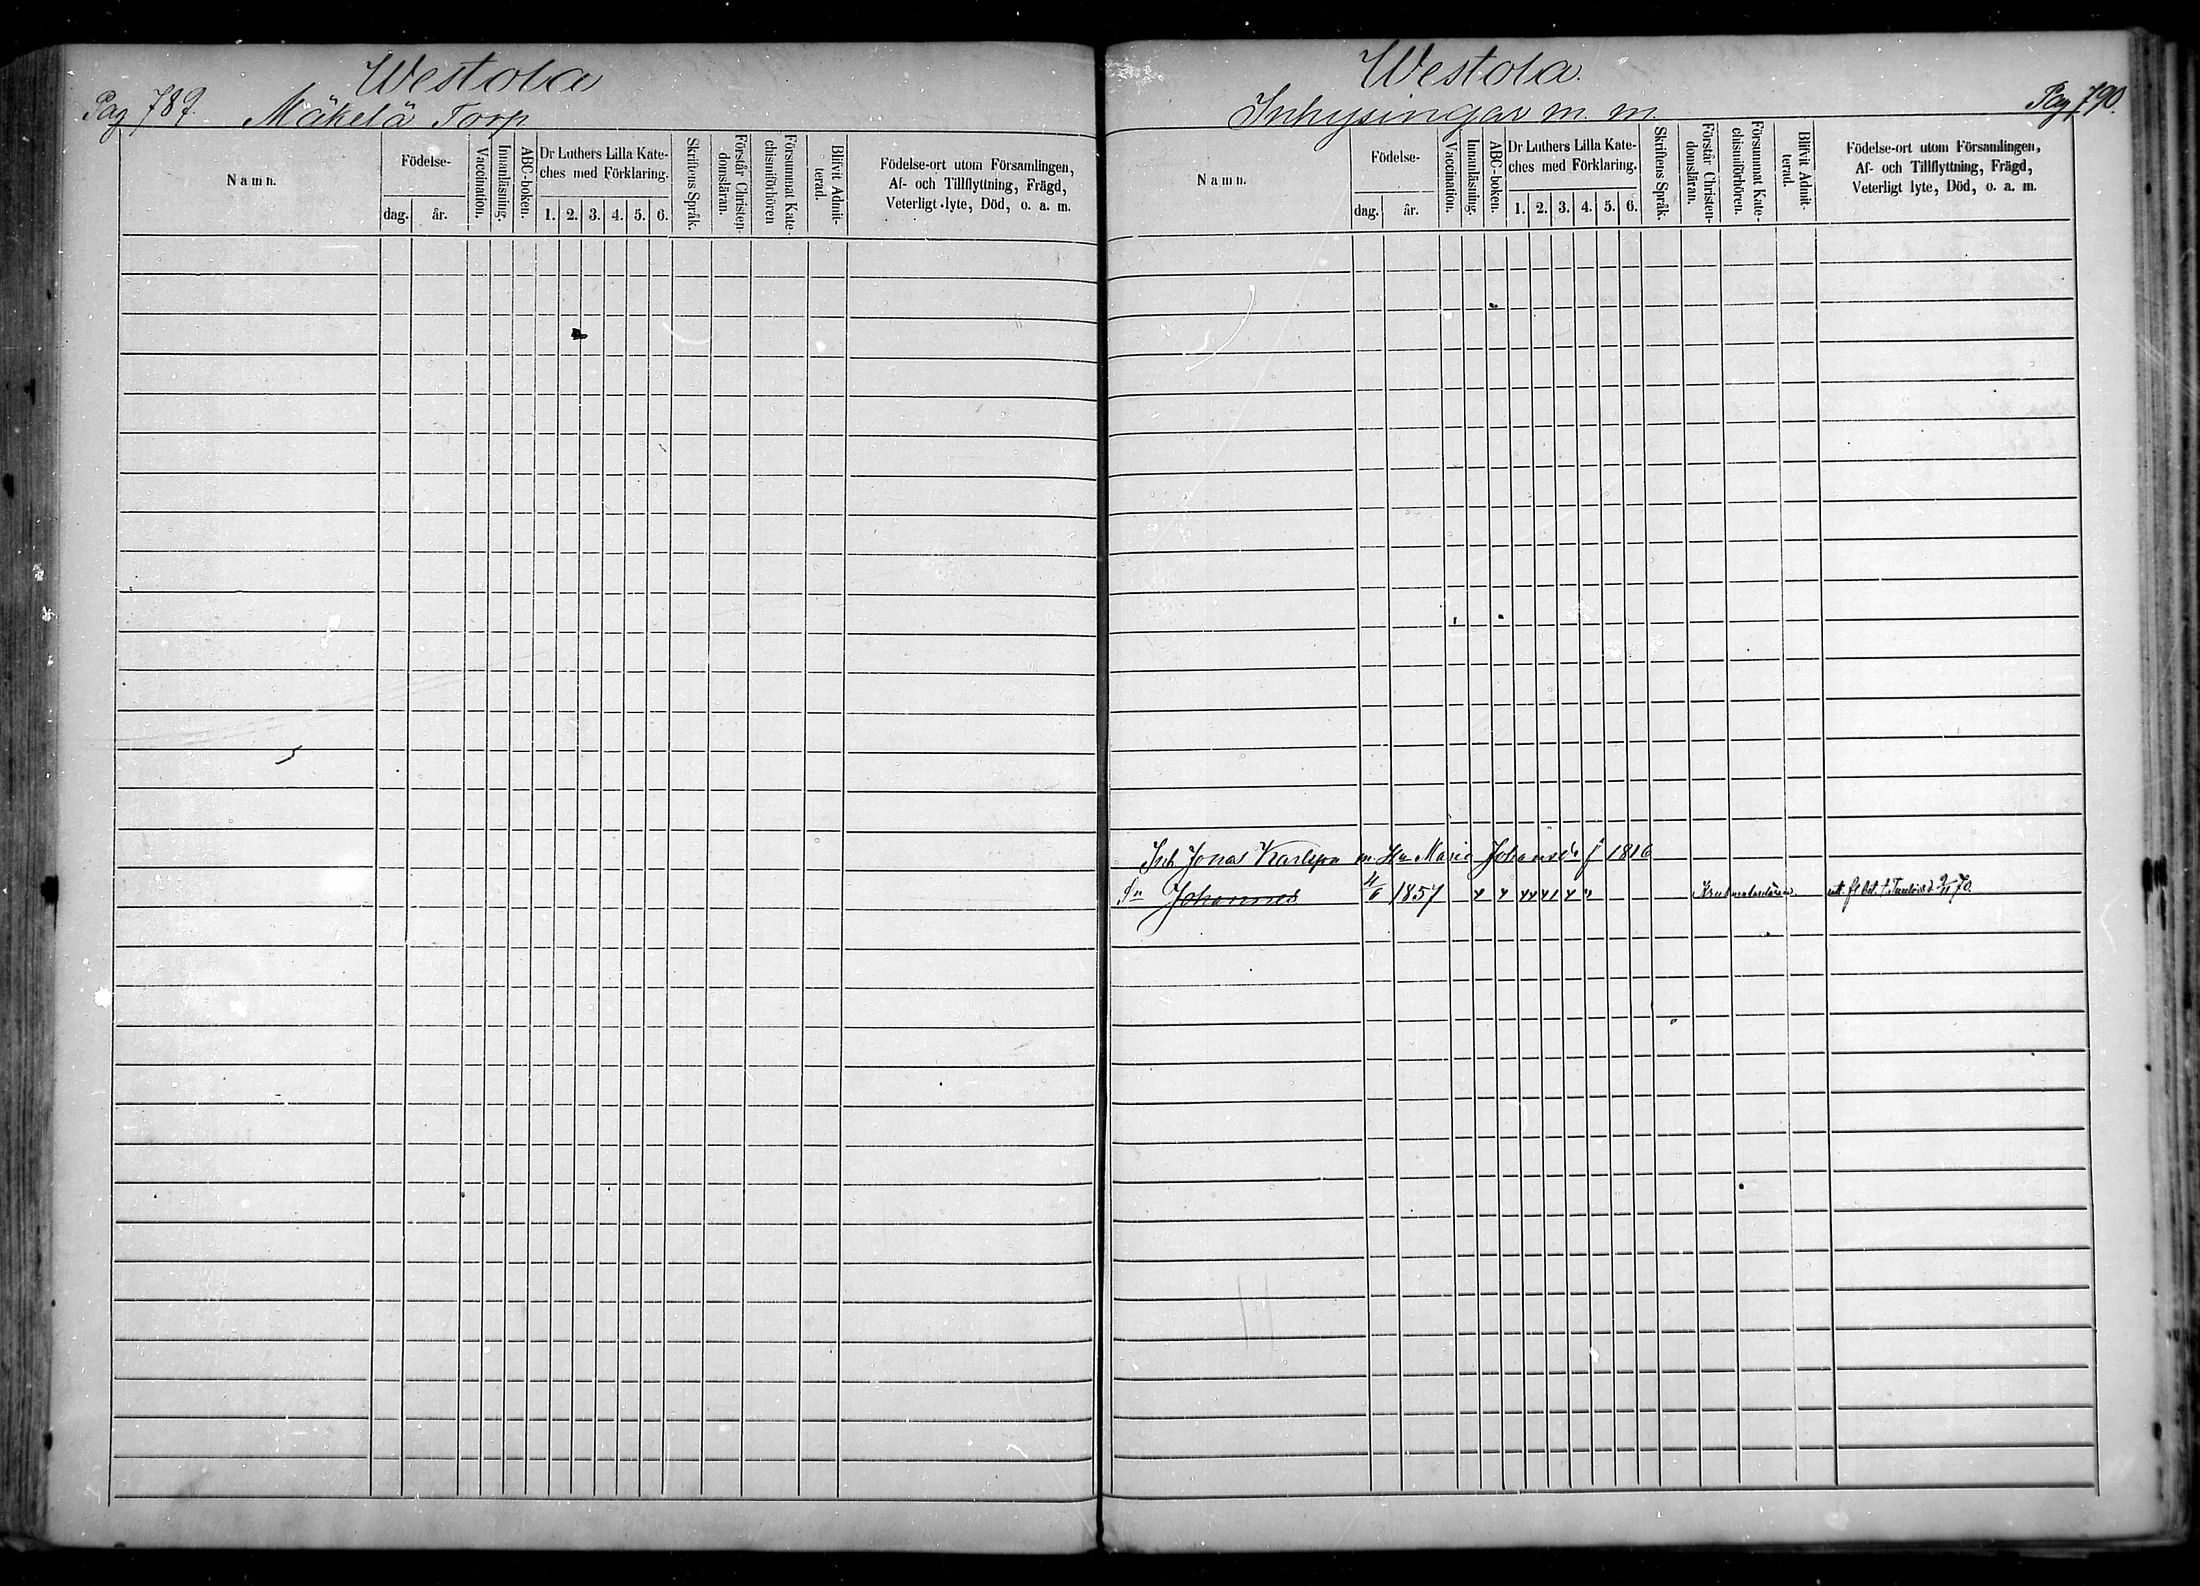 Westola
Pag 789. Mäkelä Torp
Namn.
Födelse-
dag. år.
Vaccination.
Innanläsning.
ABC-boken.
Dr Luthers Lilla Kate-
ches med Förklaring.
1. 2. 3. 4. 5. 6.
Skriftens Språk.
Förstår Christen-
domsläran.
Försummat Kate-
chismiförhören
Blifvit Admit-
terad.
Födelse-ort utom Församlingen,
Af- och Tillflyttning, Frägd,
Veterligt lyte, Död, o. a. m.
Westola.
Inhysingar m. m. Pag 790.
Namn.
Födelse-
dag. år.
Vaccination.
Innanläsning.
ABC-boken.
Dr Luthers Lilla Kate-
ches med Förklaring.
1. 2. 3. 4. 5. 6.
Skriftens Språk.
Förstår Christen-
domsläran.
Försummat Kate-
chismiförhören.
Blifvit Admit-
terad.
Födelse-ort utom Församlingen,
Af- och Tillflyttning, Frägd,
Veterligt lyte, Död, o. a. m.
Jonas Karlsson m. Hu Maria Johansd. f 1816
Sn Johannes 1857